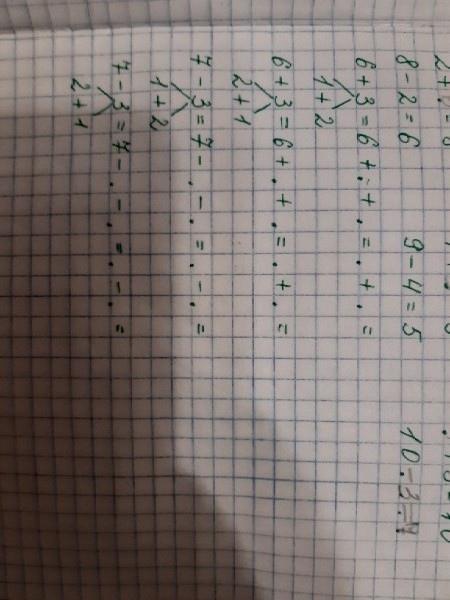 8-2=6 9-4=5 10-3=
6+3=6+.+.=.+.=
1+2
6+3=6+.+.=.+.=
2+1
7-3=7-.-.=.-.=
1+2
7-3=7-.-.=.-.=
2+1